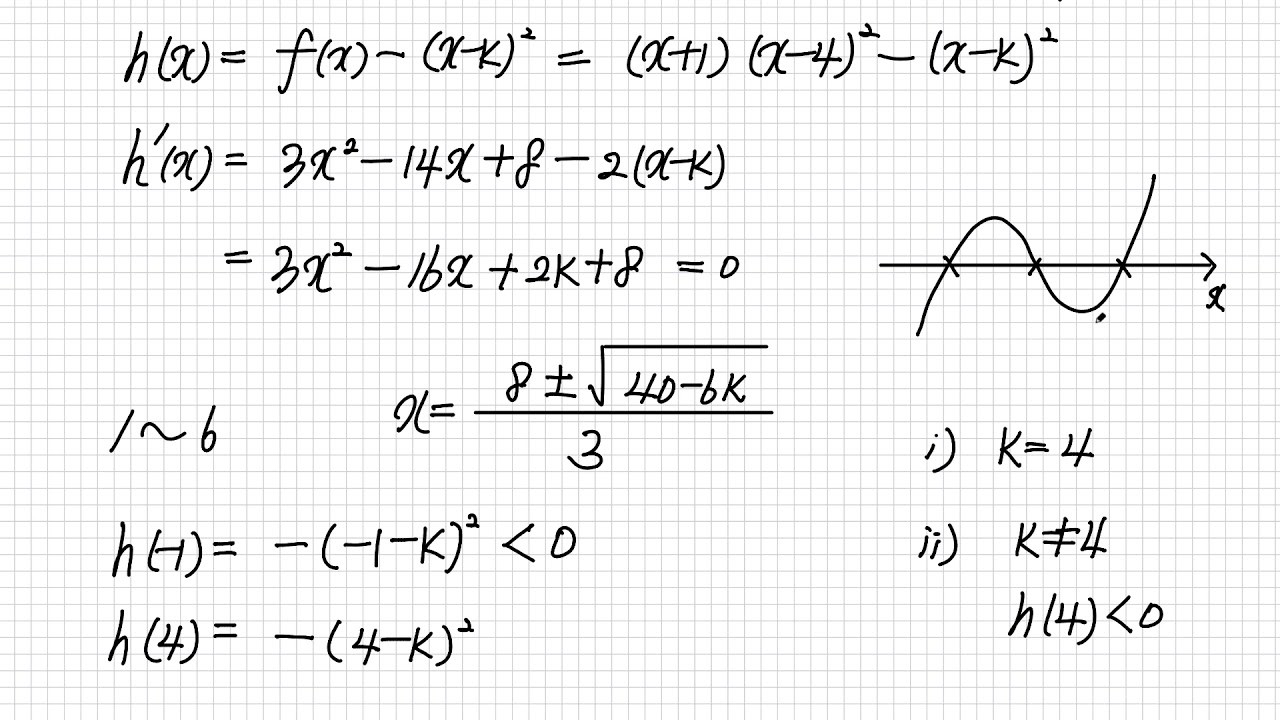 h(x) = f(x) - (x-k)² = (x+1)(x-4)² - (x-k)²
h'(x) = 3x² - 14x + 8 - 2(x-k)
= 3x² - 16x + 2k + 8 = 0
x
x = (8 ± √(40-6k))/3
1 ~ 6
i) k = 4
h(-1) = -(-1-k)² < 0
ii) k ≠ 4
h(4) < 0
h(4) = -(4-k)²